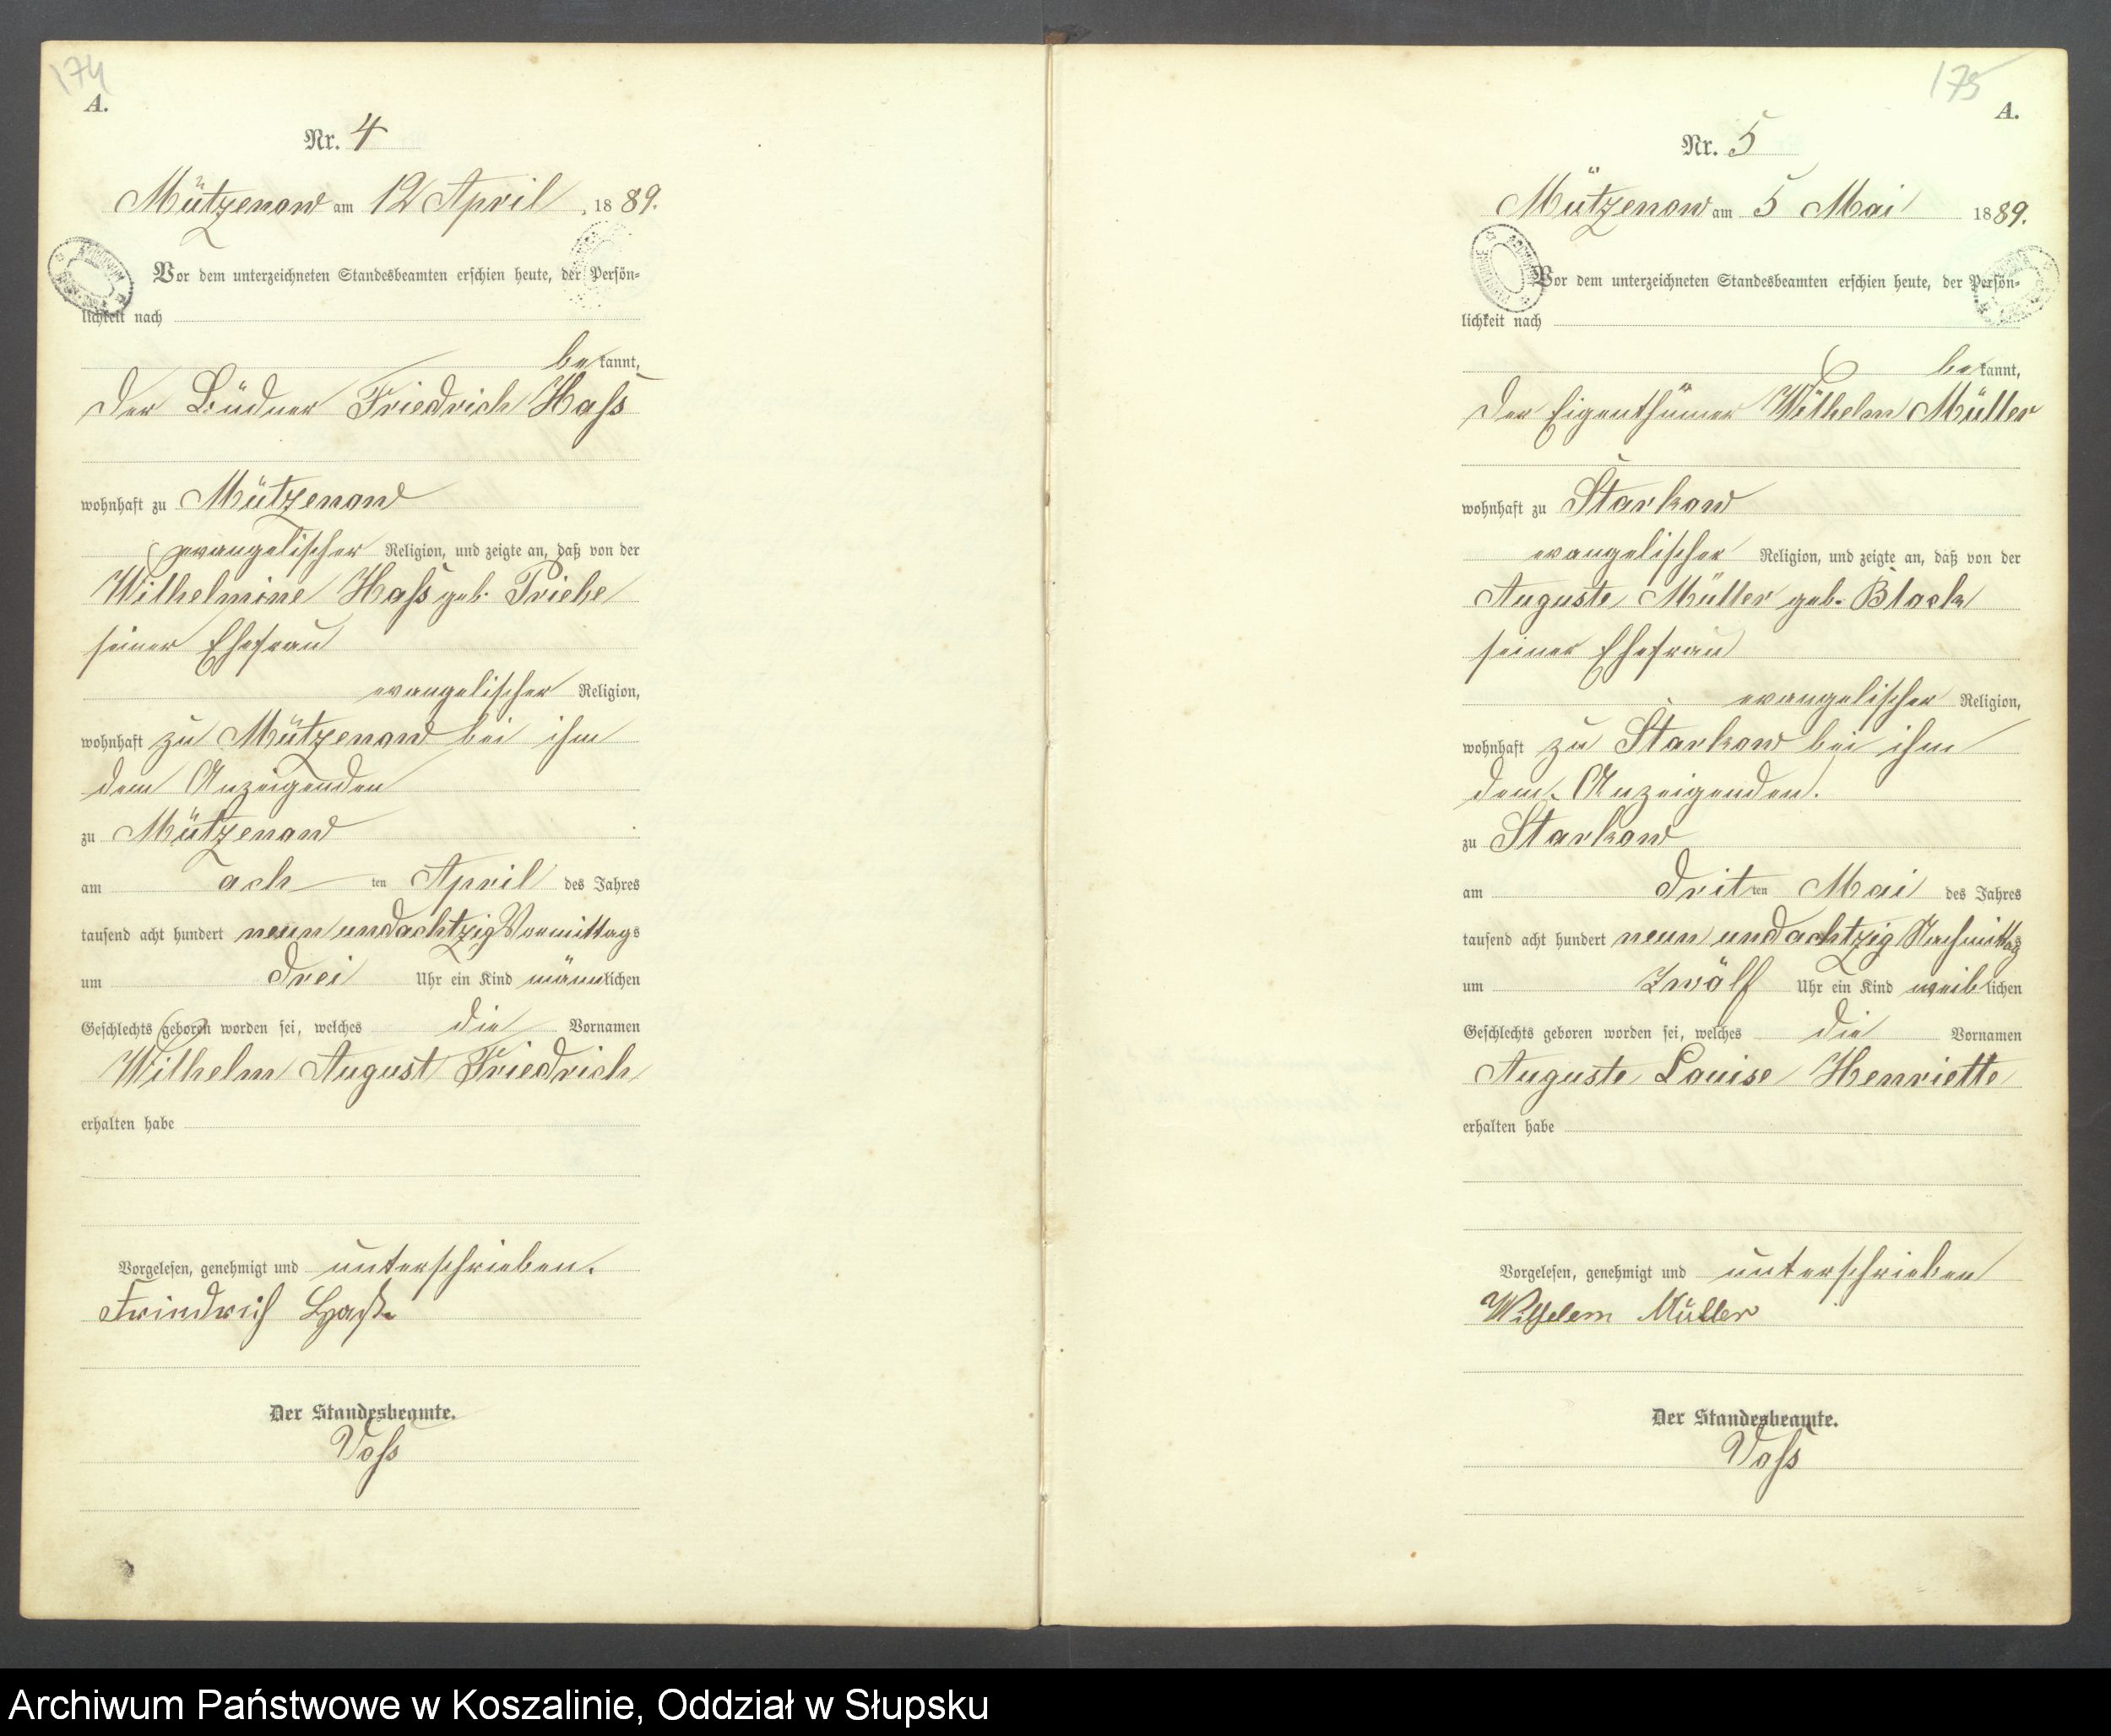 174
A.
Nr. 4
Mützenow am 12 April 1889.
Vor dem unterzeichneten Standesbeamten erschien heute, der Persön-
lichkeit nach
be kannt,
der Büdner Friedrich Hass
wohnhaft zu Mützenow
evangelischer Religion, und zeigte an, daß von der
Wilhelmine Hass geb. Priebe
seiner Ehefrau
evangelischer Religion,
wohnhaft zu Mützenow bei ihm
dem Anzeigenden
zu Mützenow
am ach ten April des Jahres
tausend acht hundert neun und achtzig Vormittags
um drei Uhr ein Kind männlichen
Geschlechts geboren worden sei, welches die Vornamen
Wilhelm August Friedrich
erhalten habe
Vorgelesen, genehmigt und unterschrieben.
Friedrich
Der Standesbeamte.
Voss
175
A.
Nr. 5
Mützenow am 5 Mai 1889.
Vor dem unterzeichneten Standesbeamten erschien heute, der Persön-
lichkeit nach
be kannt,
der Eigenthümer Wilhelm Müller
wohnhaft zu Starkow
evangelischer Religion, und zeigte an, daß von der
Auguste Müller geb. Block
seiner Ehefrau
evangelischer Religion,
wohnhaft zu Starkow bei ihm
dem Anzeigenden.
zu Starkow
am drit ten Mai des Jahres
tausend acht hundert neun und achtzig Nachmittag
um Zwölf Uhr ein Kind weib lichen
Geschlechts geboren worden sei, welches die Vornamen
Auguste Louise Henriette
erhalten habe
Vorgelesen, genehmigt und unterschrieben
Wilhelem Müller
Der Standesbeamte.
Voss
Archiwum Państwowe w Koszalinie, Oddział w Słupsku